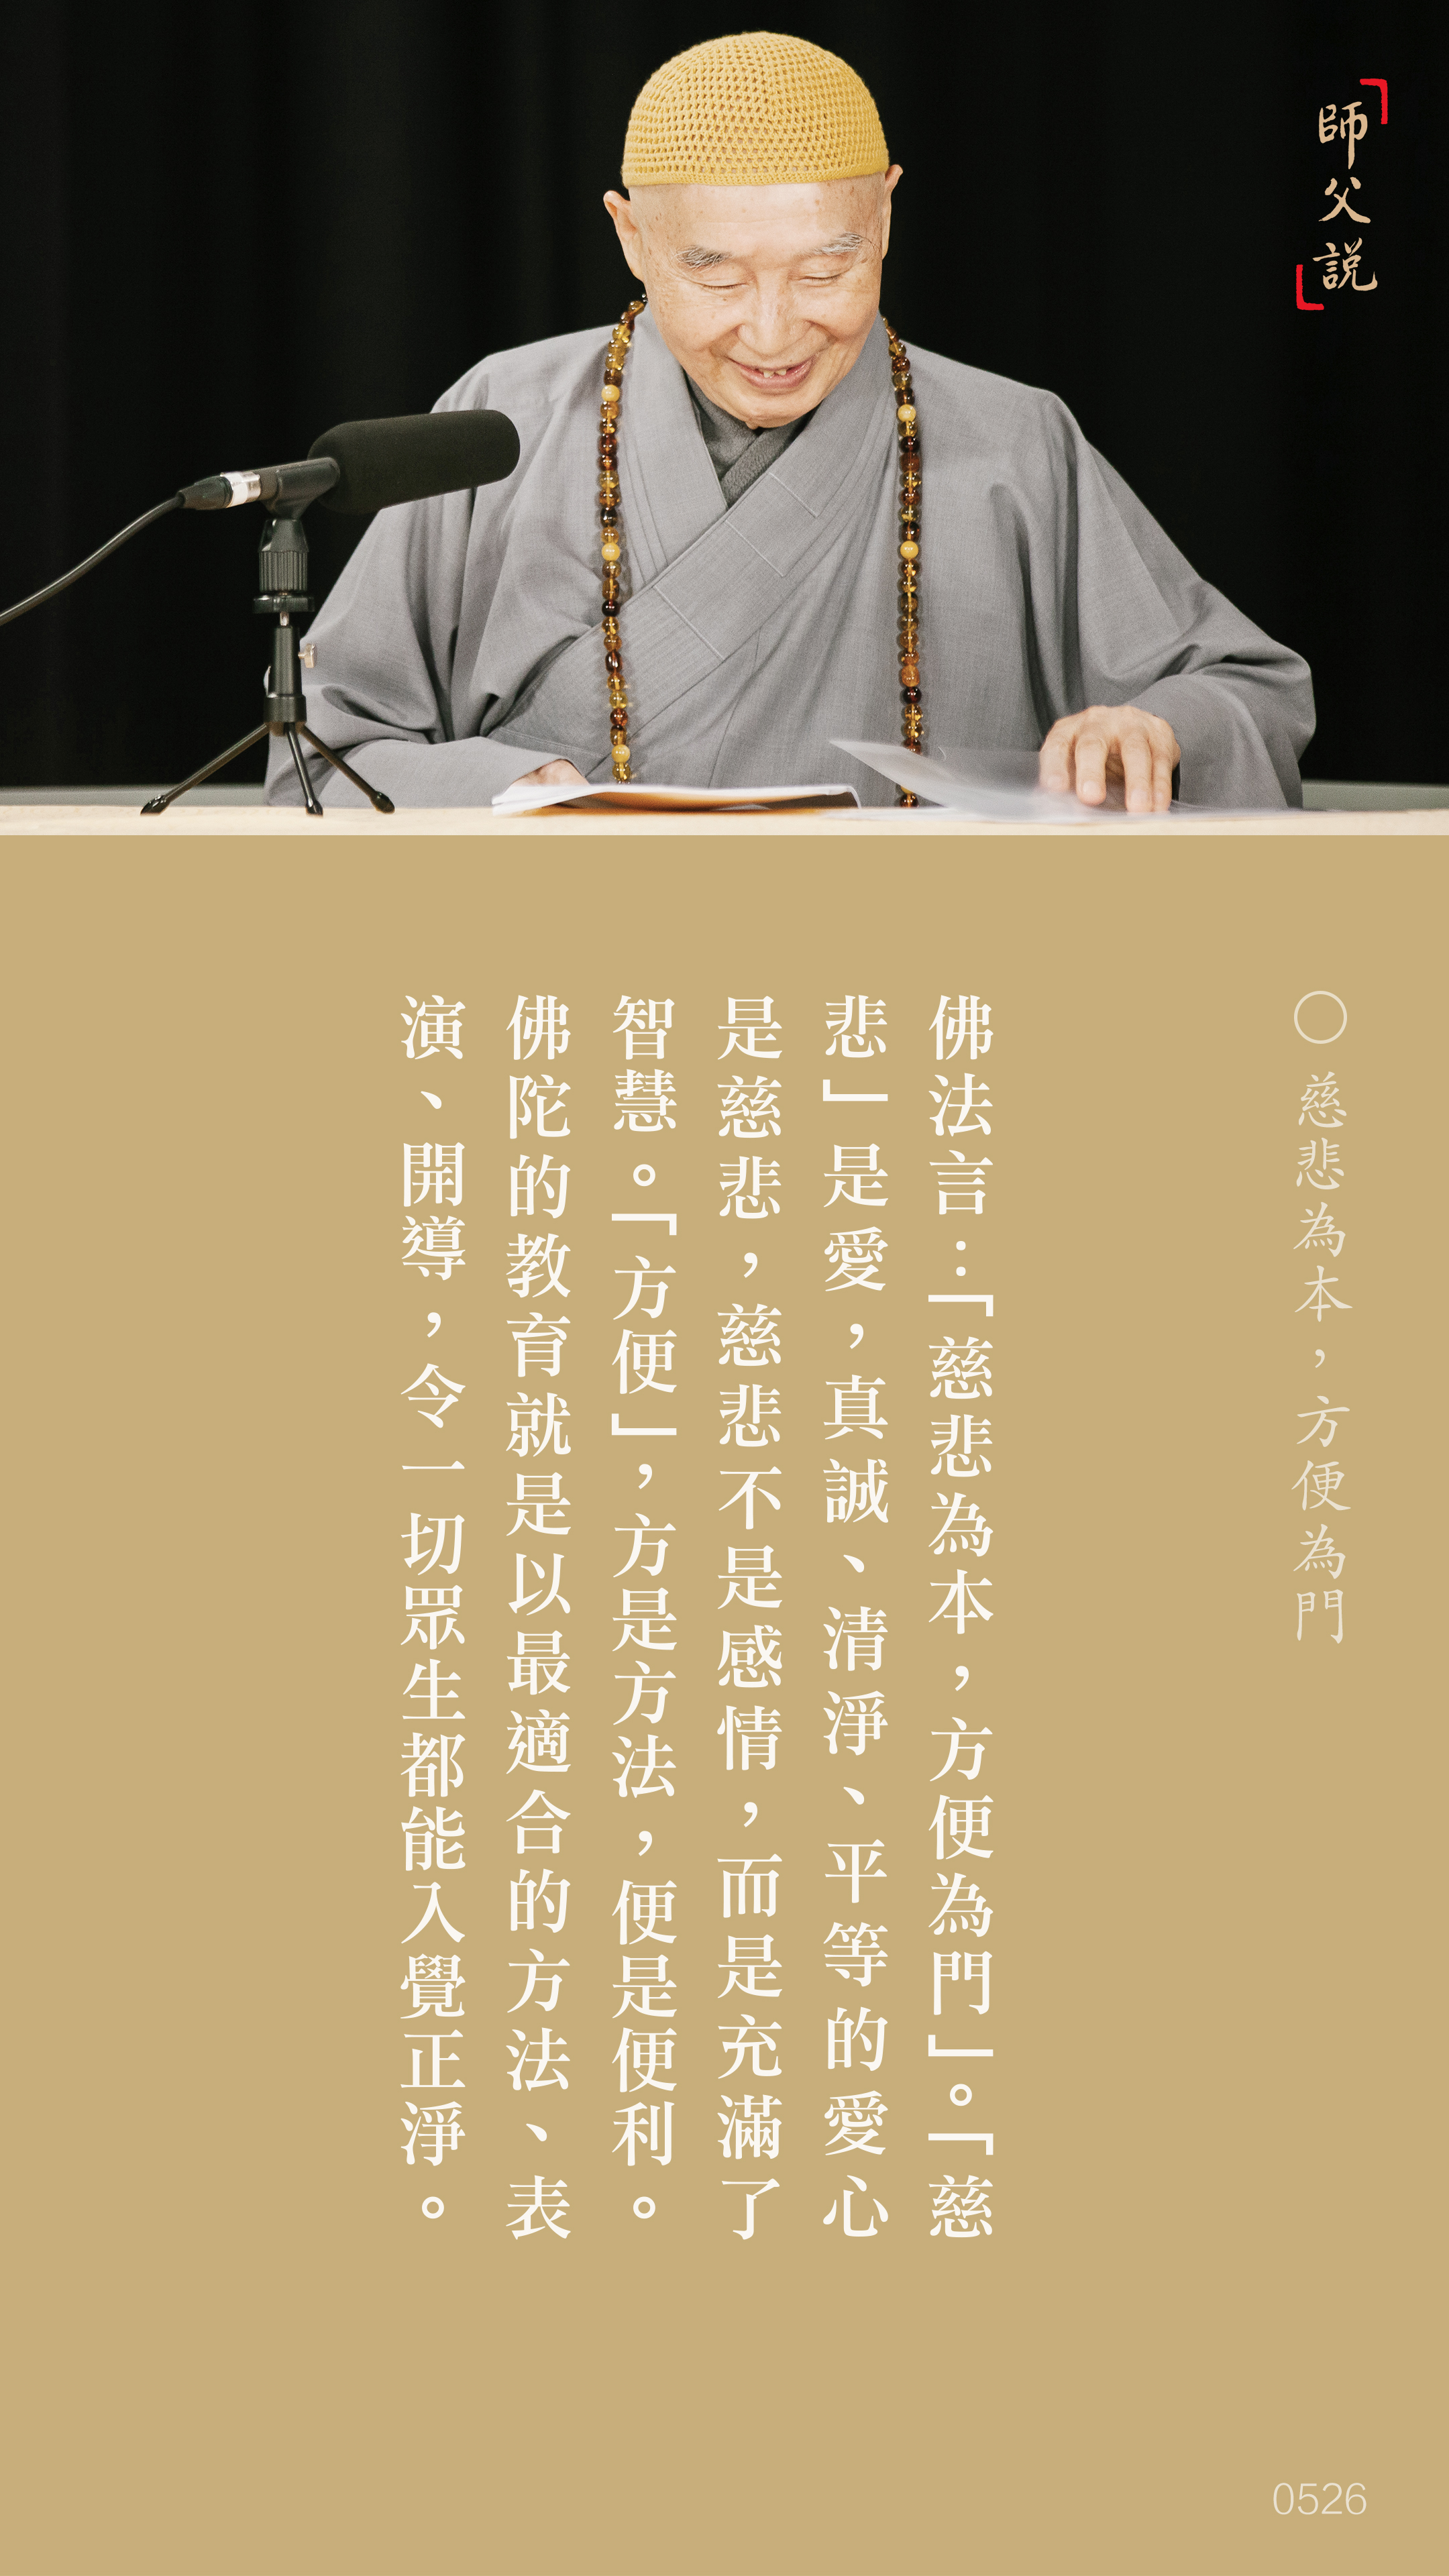 「師父説」
○ 慈悲為本，方便為門
佛法言：「慈悲為本，方便為門」。「慈
悲」是愛，真誠、清淨、平等的愛心
是慈悲，慈悲不是感情，而是充滿了
智慧。「方便」，方是方法，便是便利。
佛陀的教育就是以最適合的方法、表
演、開導，令一切眾生都能入覺正淨。
0526